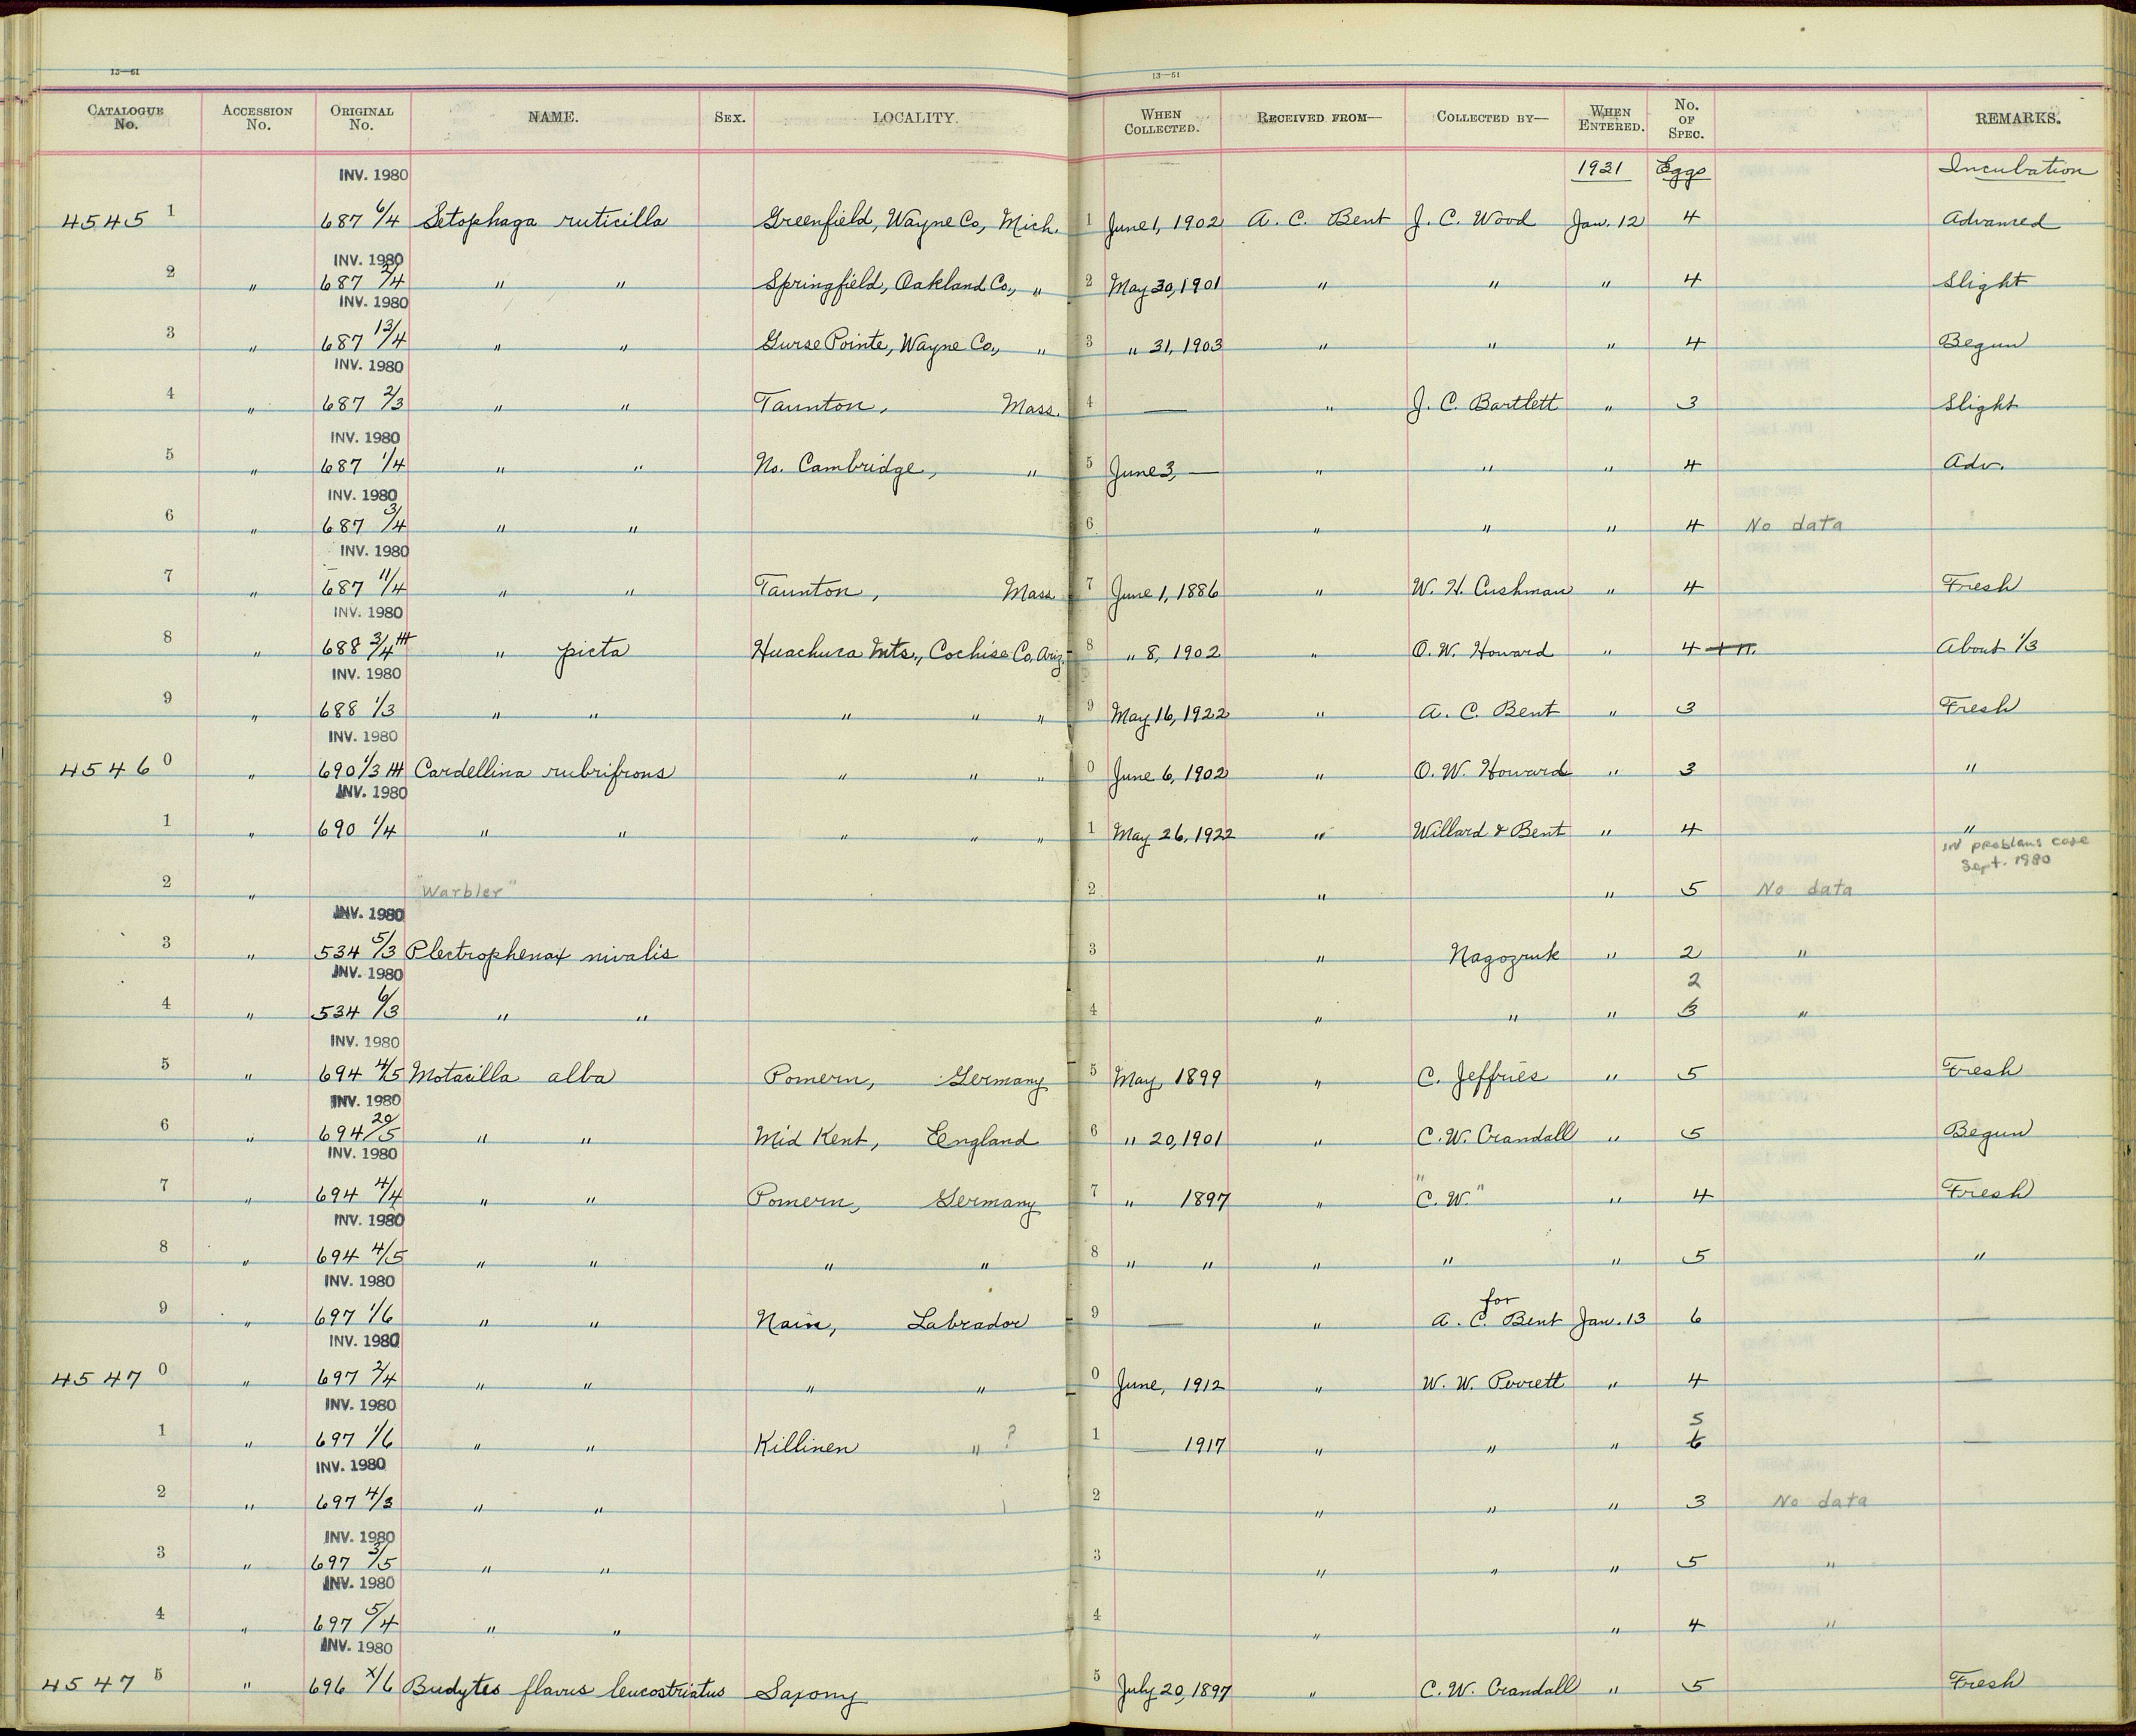 13—51 13—51
CATALOGUE No. ACCESSION No. ORIGINAL No. NAME. SEX. LOCALITY. WHEN COLLECTED. RECEIVED FROM— COLLECTED BY— WHEN ENTERED. No. OF SPEC. REMARKS.
INV. 1980 1931 Eggs Incubation
4545 1 687 6/4 Setophaga ruticilla Greenfield, Wayne Co, Mich. 1 June 1, 1902 A. C. Bent J. C. Wood Jan. 12 4 Advanced
INV. 1980
2 " 687 2/4 " " Springfield, Oakland Co., " 2 May 30, 1901 " " " 4 Slight
INV. 1980
3 " 687 13/4 " " Gurse Pointe, Wayne Co., " 3 " 31, 1903 " " " 4 Begun
INV. 1980
4 " 687 2/3 " " Taunton, Mass. 4 — " J. C. Bartlett " 3 Slight
INV. 1980
5 " 687 1/4 " " No. Cambridge, " 5 June 3, — " " " 4 Adv.
INV. 1980
6 " 687 3/4 " " 6 " " " 4 No data
INV. 1980
7 " 687 11/4 " " Taunton, Mass 7 June 1, 1886 " W. H. Cushman " 4 Fresh
INV. 1980
8 " 688 3/4 " picta Huachuca Mts., Cochise Co, Ariz. 8 " 8, 1902 " O. W. Howard " 4 + n. About 1/3
INV. 1980
9 " 688 1/3 " " " " " 9 May 16, 1922 " A. C. Bent " 3 Fresh
INV. 1980
4546 0 " 690 1/3 Cardellina rubrifrons " " " 0 June 6, 1902 " O. W. Howard " 3 "
INV. 1980
1 " 690 1/4 " " " " " 1 May 26, 1922 " Willard & Bent " 4 "
in problems case
Sept. 1980
2 " "Warbler" 2 " " 5 No data
INV. 1980
3 " 534 5/3 Plectrophenax nivalis 3 " Nagozruk " 2 "
INV. 1980 2
4 " 534 6/3 " " 4 " " " 3 "
INV. 1980
5 " 694 4/5 Motacilla alba Pomern, Germany 5 May, 1899 " C. Jeffries " 5 Fresh
INV. 1980
6 " 694 20/5 " " Mid Kent, England 6 " 20, 1901 " C. W. Crandall " 5 Begun
INV. 1980
7 " 694 4/4 " " Pomern, Germany 7 " 1897 " "C. W." " 4 Fresh
INV. 1980
8 " 694 4/5 " " " " 8 " " " " " 5 "
INV. 1980 for
9 " 697 1/6 " " Nain, Labrador 9 — " A. C. Bent Jan. 13 6 —
INV. 1980
4547 0 " 697 2/4 " " " " 0 June, 1912 " W. W. Perrett " 4 —
INV. 1980 5
1 " 697 1/6 " " Killinen " ? 1 — 1917 " " " 6 —
INV. 1980
2 " 697 4/3 " " 2 " " " 3 No data
INV. 1980
3 " 697 3/5 " " 3 " " " 5 "
INV. 1980
4 " 697 5/4 " " 4 " " 4 "
INV. 1980
4547 5 " 696 x/6 Budytes flavus leucostriatus Saxony 5 July 20, 1897 " C. W. Crandall " 5 Fresh